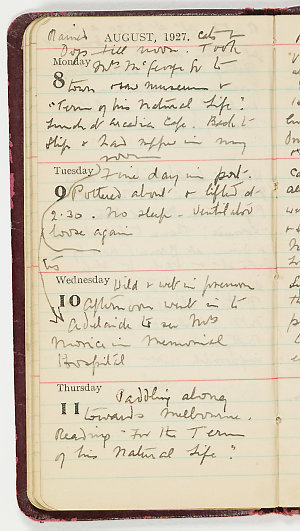 Rained AUGUST, 1927. cats &
Dogs till noon. Took
Monday Mrs McGeorge Sr to
8 town & saw museum &
"Term of his Natural Life".
Lunch at Arcadia Cafe. Back to
ship & had supper in my
room
Tuesday Fine day in port.
9 Pottered about & lifted at
2.30. No sleep - Ventilator
loose again
Wednesday Wild & wet in forenoon
10 Afternoon went in to
Adelaide to see Mrs
in Memorial
Hospital
Thursday Paddling along
11 towards Melbourne.
Reading "For the Term
of his Natural Life".